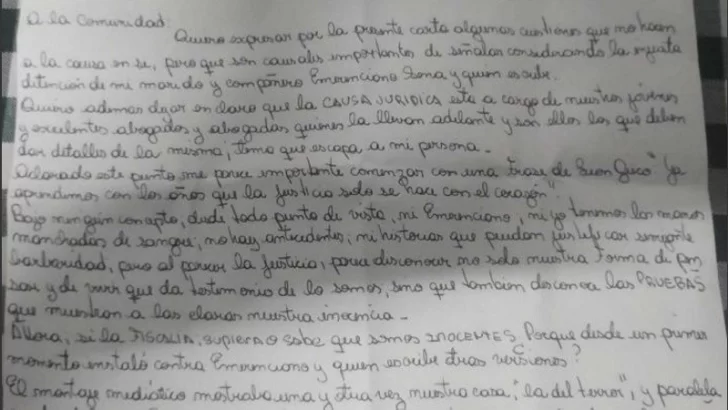 A la Comunidad:
Quiero expresar por la presente carta algunas cuestiones que no hacen
a la causa en si, pero que son causales importantes de señalar considerando la injusta
detención de mi marido y compañero Emerenciano Sena y quien escribe.
Quiero ademas dejar en claro que la CAUSA JURIDICA esta a cargo de nuestros jóvenes
y excelentes abogados y abogadas quienes la llevan adelante y son ellos los que deben
dar detalles de la misma, tema que escapa a mi persona.
Aclarado este punto me parece importante comenzar con una frase de "ya
aprendimos con los años que la justicia solo se hace con el corazón".
Bajo ningún concepto, desde todo punto de vista, ni Emerenciano, ni yo tenemos las manos
manchadas de sangre, no hay antecedentes, ni historias que puedan justificar semejante
barbaridad, pero al parecer la justicia, parece desconocer no solo nuestra forma de pen
sar y de vivir que da testimonio de lo somos, sino que tambien desconoce las PRUEBAS
que muestran a las claras nuestra inocencia.
Ahora, si la FISCALIA, SUPIERA O sabe que somos INOCENTES. Porque desde un primer
momento instaló contra Emerenciano y quien escribe otras versiones?
El montaje mediático mostraba una y otra vez nuestra casa, "la del terror", y paralela